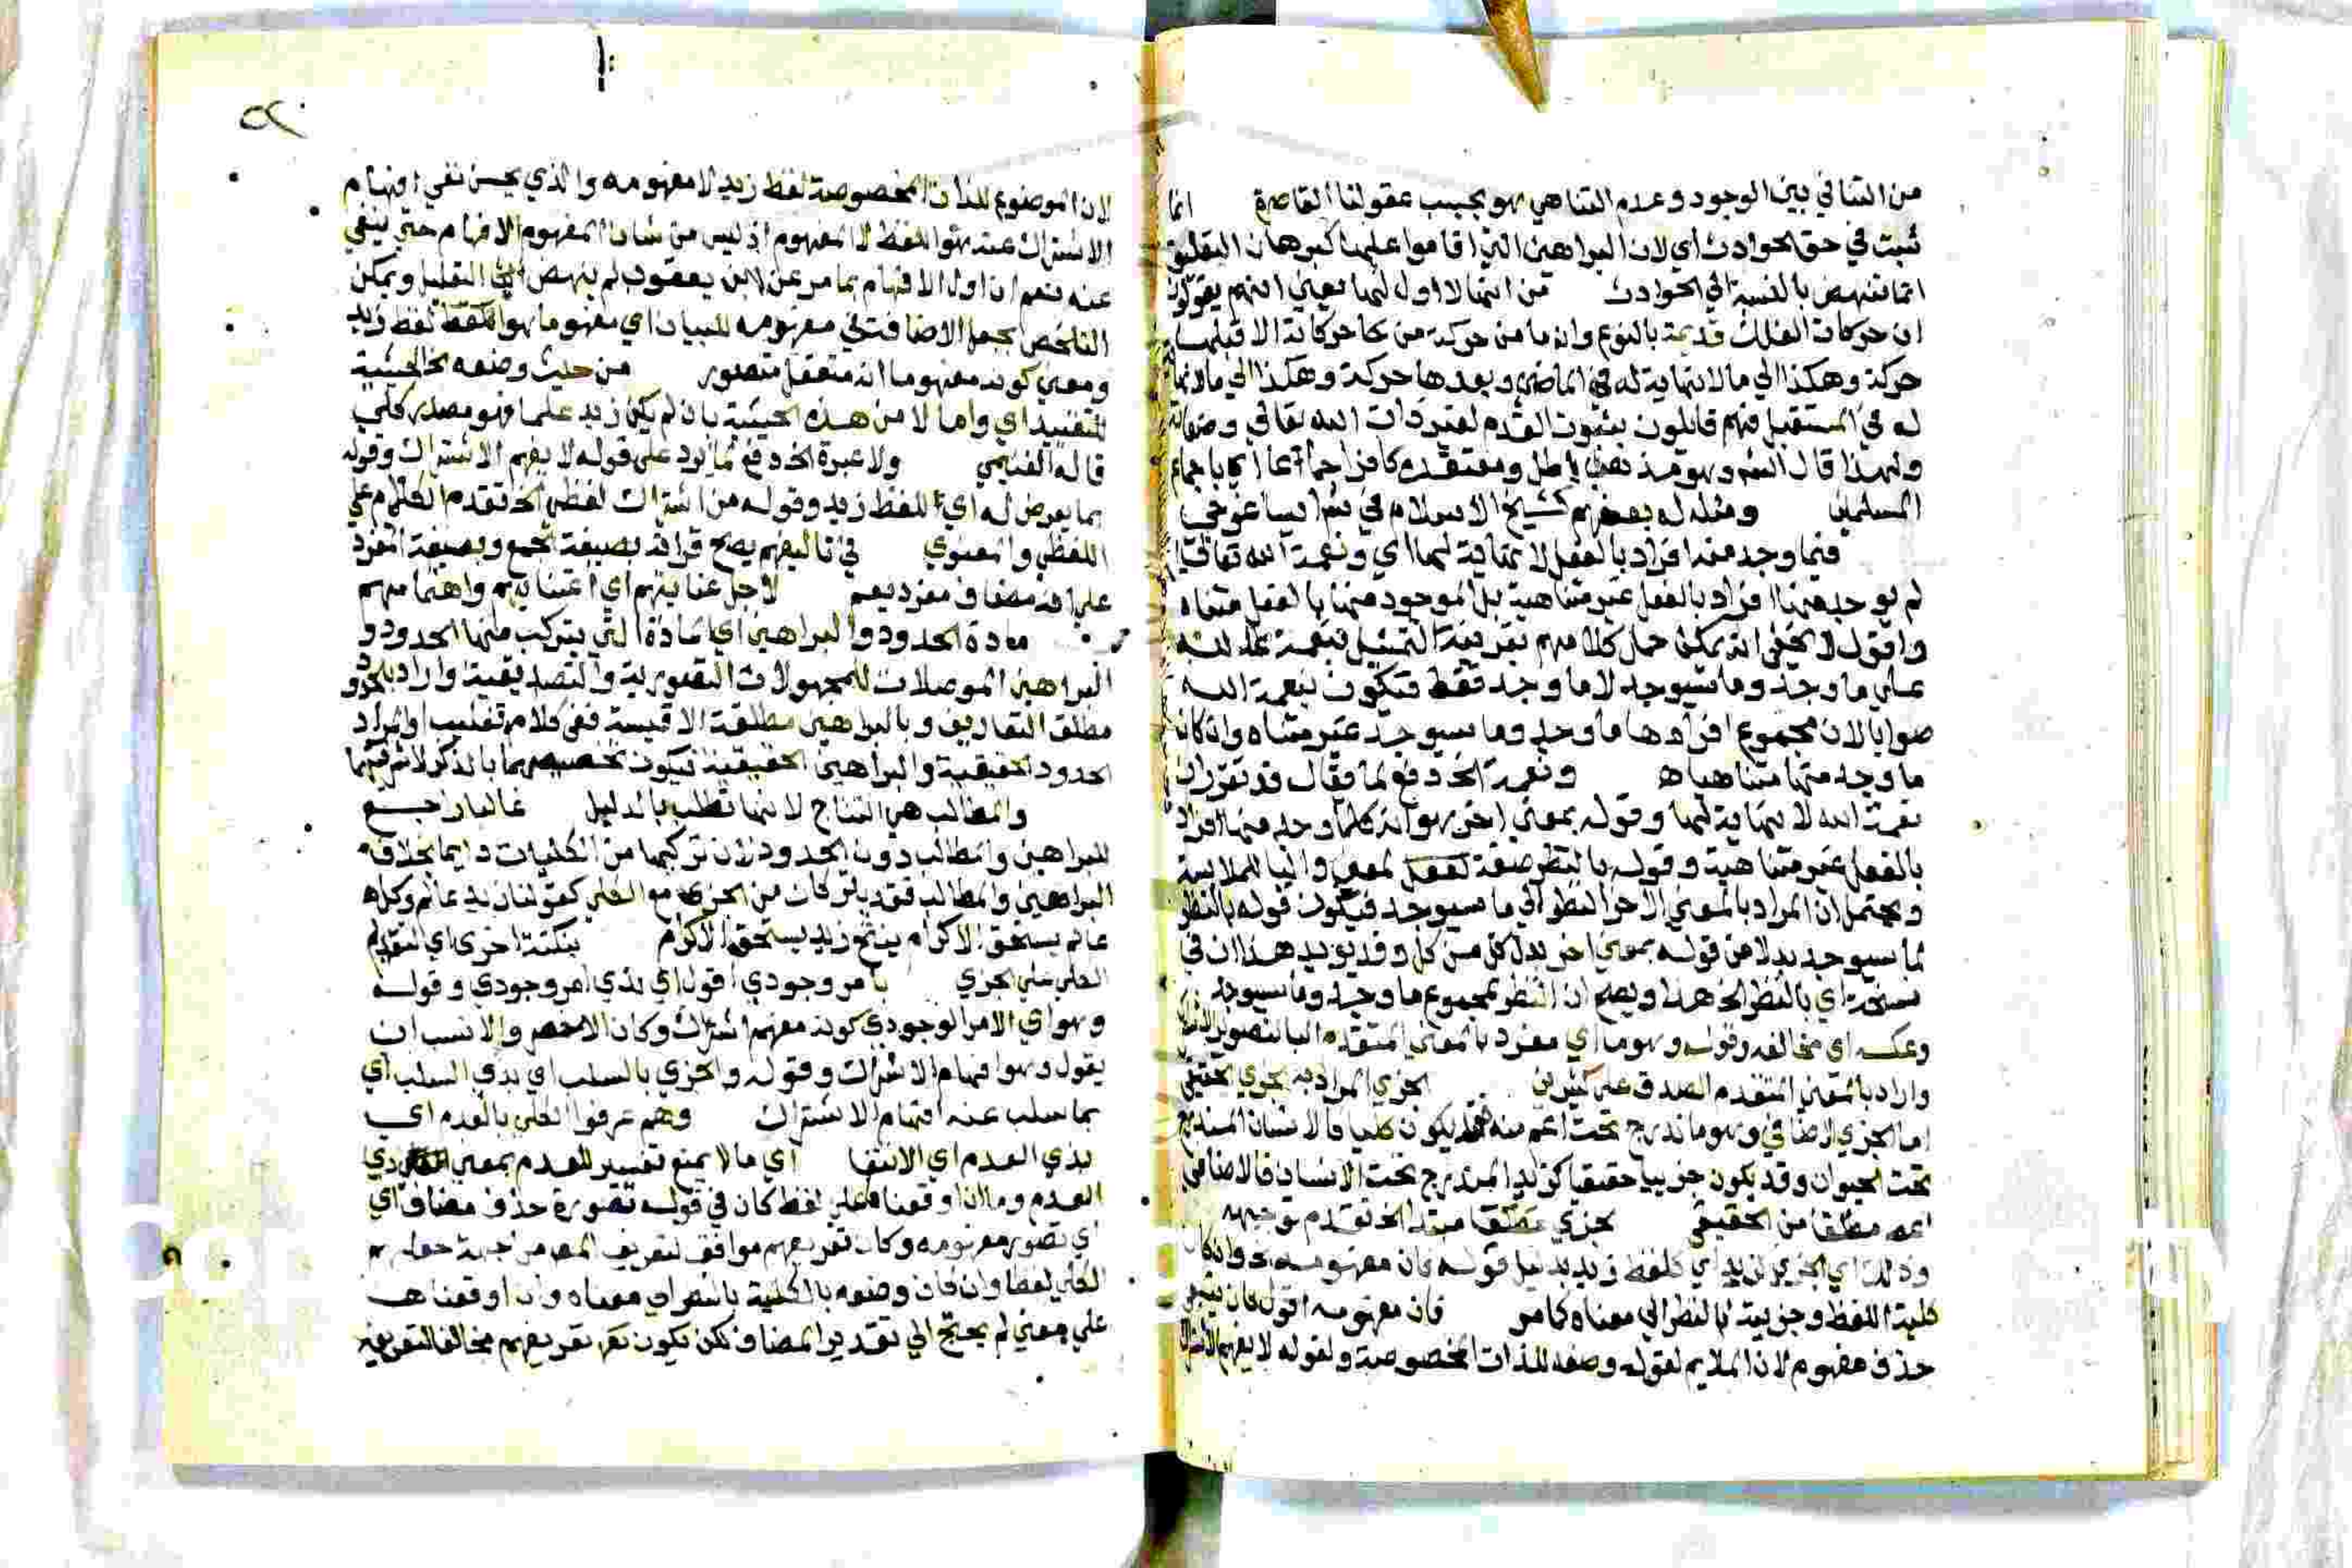 من التنافي بين الوجود وعدم التناهي هو بحسب عقولنا القاصرة انما
ثبت في حق الحوادث اي لان البراهين التي اقاموا عليها كبرهان التطبيق
انما تنهض بالنسبة الي الحوادث من انها لا اول لها يعني انهم يقولون
ان حركات الفلك قديمة بالنوع وانه ما من حركة من حركاته الا قبلها
حركة وهكذا الي ما لا نهاية له في الماضي وبعدها حركة وهكذا الي مالانهاية
له في المستقبل فهم قايلون بثبوت القدم لغير ذات الله تعالي وصفاته
ولهذا قال الشه وهو مذهب باطل ومعتقده كافر اجماعا اي باجماع
المسلمين ومثله له بعضهم كشيخ الاسلام في شرح ايساغوجي
فيما وجد منه افراد بالفعل لا نهاية لها اي ونعمة الله تعالي
لم يوجد منها افراد بالفعل غير متناهية بل الموجود منها بالفعل متناه
واقول لا يخفي انه يمكن حمل كلامهم بقرينة التمثيل بنعمة الله
علي ما وجد وما سيوجد لا ما وجد فقط فتكون نعمة الله
صوابا لان مجموع افرادها ما وجد وما سيوجد غير متناه وان كان
ما وجد منها متناهيا ه ونعمة الخ دفع لما يقال قد تقرر ان
نعمة الله لا نهاية لها وقوله بمعني اخر هو انه كلما وجد منها افراد
بالفعل غير متناهية وقوله بالنظر صفة لمعني والبا للملابسة
ويحتمل ان المراد بالمعني الاخر النظر الي ما سيوجد فيكون قوله بالنظر
لما سيوجد بدلا من قوله بمعني اخر بدل كل من كل وقد يويد هذا ان في
نسخة اي بالنظر الخ هذا ويصح ان النظر لمجموع ما وجد وما سيوجد
وعكسه اي مخالفه وقوله وهو ما اي مفرد بالمعني المتقدم البا للتصوير
واراد بالمعني المتقدم الصدق علي كثيرين الجزي المراد به الجزي الحقيقي
اما الجزي الاضافي وهو ما اندرج تحت اعم منه فقد يكون كليا كالانسان المندرج
تحت الحيوان وقد يكون جزييا حقيقيا كزيد المندرج تحت الانسان فالاضافي
اعم مطلقا من الحقيقي لجزي مطلقا مبتدا الخ تقدم توجيهه
وذلك اي الجزي كزيد اي كلفظ زيد بدليل قوله فان مفهومه الخ وان كان
كلية اللفظ وجزيية بالنظر الي معناه كما مر فان مفهومه اقول كان ينبغي
حذف مفهوم لان الملايم لقوله وضعه للذات المخصوصة ولقوله لا يفهم الاشتراك
لان الموضوع للذات المخصوصة لفظ زيد لا مفهومه والذي يحسن نفي افهام
الاشتراك عنه هو اللفظ لا المفهوم اذ ليس من شان المفهوم الافهام حتي ينفي
عنه نعم ان اول الافهام بما مر عن ابن يعقوب لم ينهض التعليل ويمكن
التلخص بجعل الاضافة في مفهومه للبيان اي مفهوم ما هو لفظ زيد
ومعني كونه مفهوما انه متعقل متصور من حيث وضعه الخ الحيثية
للتقييد اي واما لا من هذه الحيثية بان لم يكن زيد علما فهو مصدر كلي
قاله الغنيمي ولا عبرة الخ دفع لما يرد علي قوله لا يفهم الاشتراك وقوله
بما يعرض له اي للفظ زيد وقوله من اشتراك لفظي الخ تقدم الكلام علي
اللفظي والمعنوي في تاليفهم يصح قراته بصيغة الجمع وبصيغة المفرد
علي انه مضاف مفرد يعم لاجل عنايتهم اي اعتنايهم واهتمامهم
مادة الحدود والبراهين اي المادة التي يتركب منها الحدود و
البراهين الموصلات للمجهولات التصورية والتصديقية واراد بالحدود
مطلق التعاريف وبالبراهين مطلقة الاقيسة ففي كلامه تغليب او المراد
الحدود الحقيقية والبراهين الحقيقية فيكون تخصيصهما بالذكر لاشرفيتهما
والمطالب هي النتاج لانها تطلب بالدليل غالبا راجع
للبراهين والمطالب دون الحدود لان تركيبها من الكليات دايما بخلاف
البراهين والمطالب فقد يتركبان من الجزي مع الكلي كقولنا زيد عالم وكل
عالم يستحق الاكرام ينتج زيد يستحق الاكرام بنكتة اخري اي لتقديم
الكلي علي الجزي بامر وجودي اقول اي بذي امر وجودي وقوله
وهو اي الامر الوجودي كونه مفهم اشتراك وكان الاخصر والانسب ان
يقول وهو افهام الاشتراك وقوله والجزي بالسلب اي بذي السلب اي
بما سلب عنه افهام الاشتراك وهم عرفوا الكلي بالعدم اي
بذي العدم اي الانتفا اي ما لا يمنع تفسير للعدم بمعني ذي
العدم وما ان اوقعنا ها علي لفظ كان في قوله تصوره حذف مضاف اي
اي تصور مفهومه وكان تعريفهم موافق لتعريف المص من جهة جعلهم
الكلي لفظا وان كان وصفه بالكلية بالنظر الي معناه وان اوقعناها
علي معني لم يحتج الي تقدير المضاف لكن يكون تعريفهم مخالفا لتعريفه